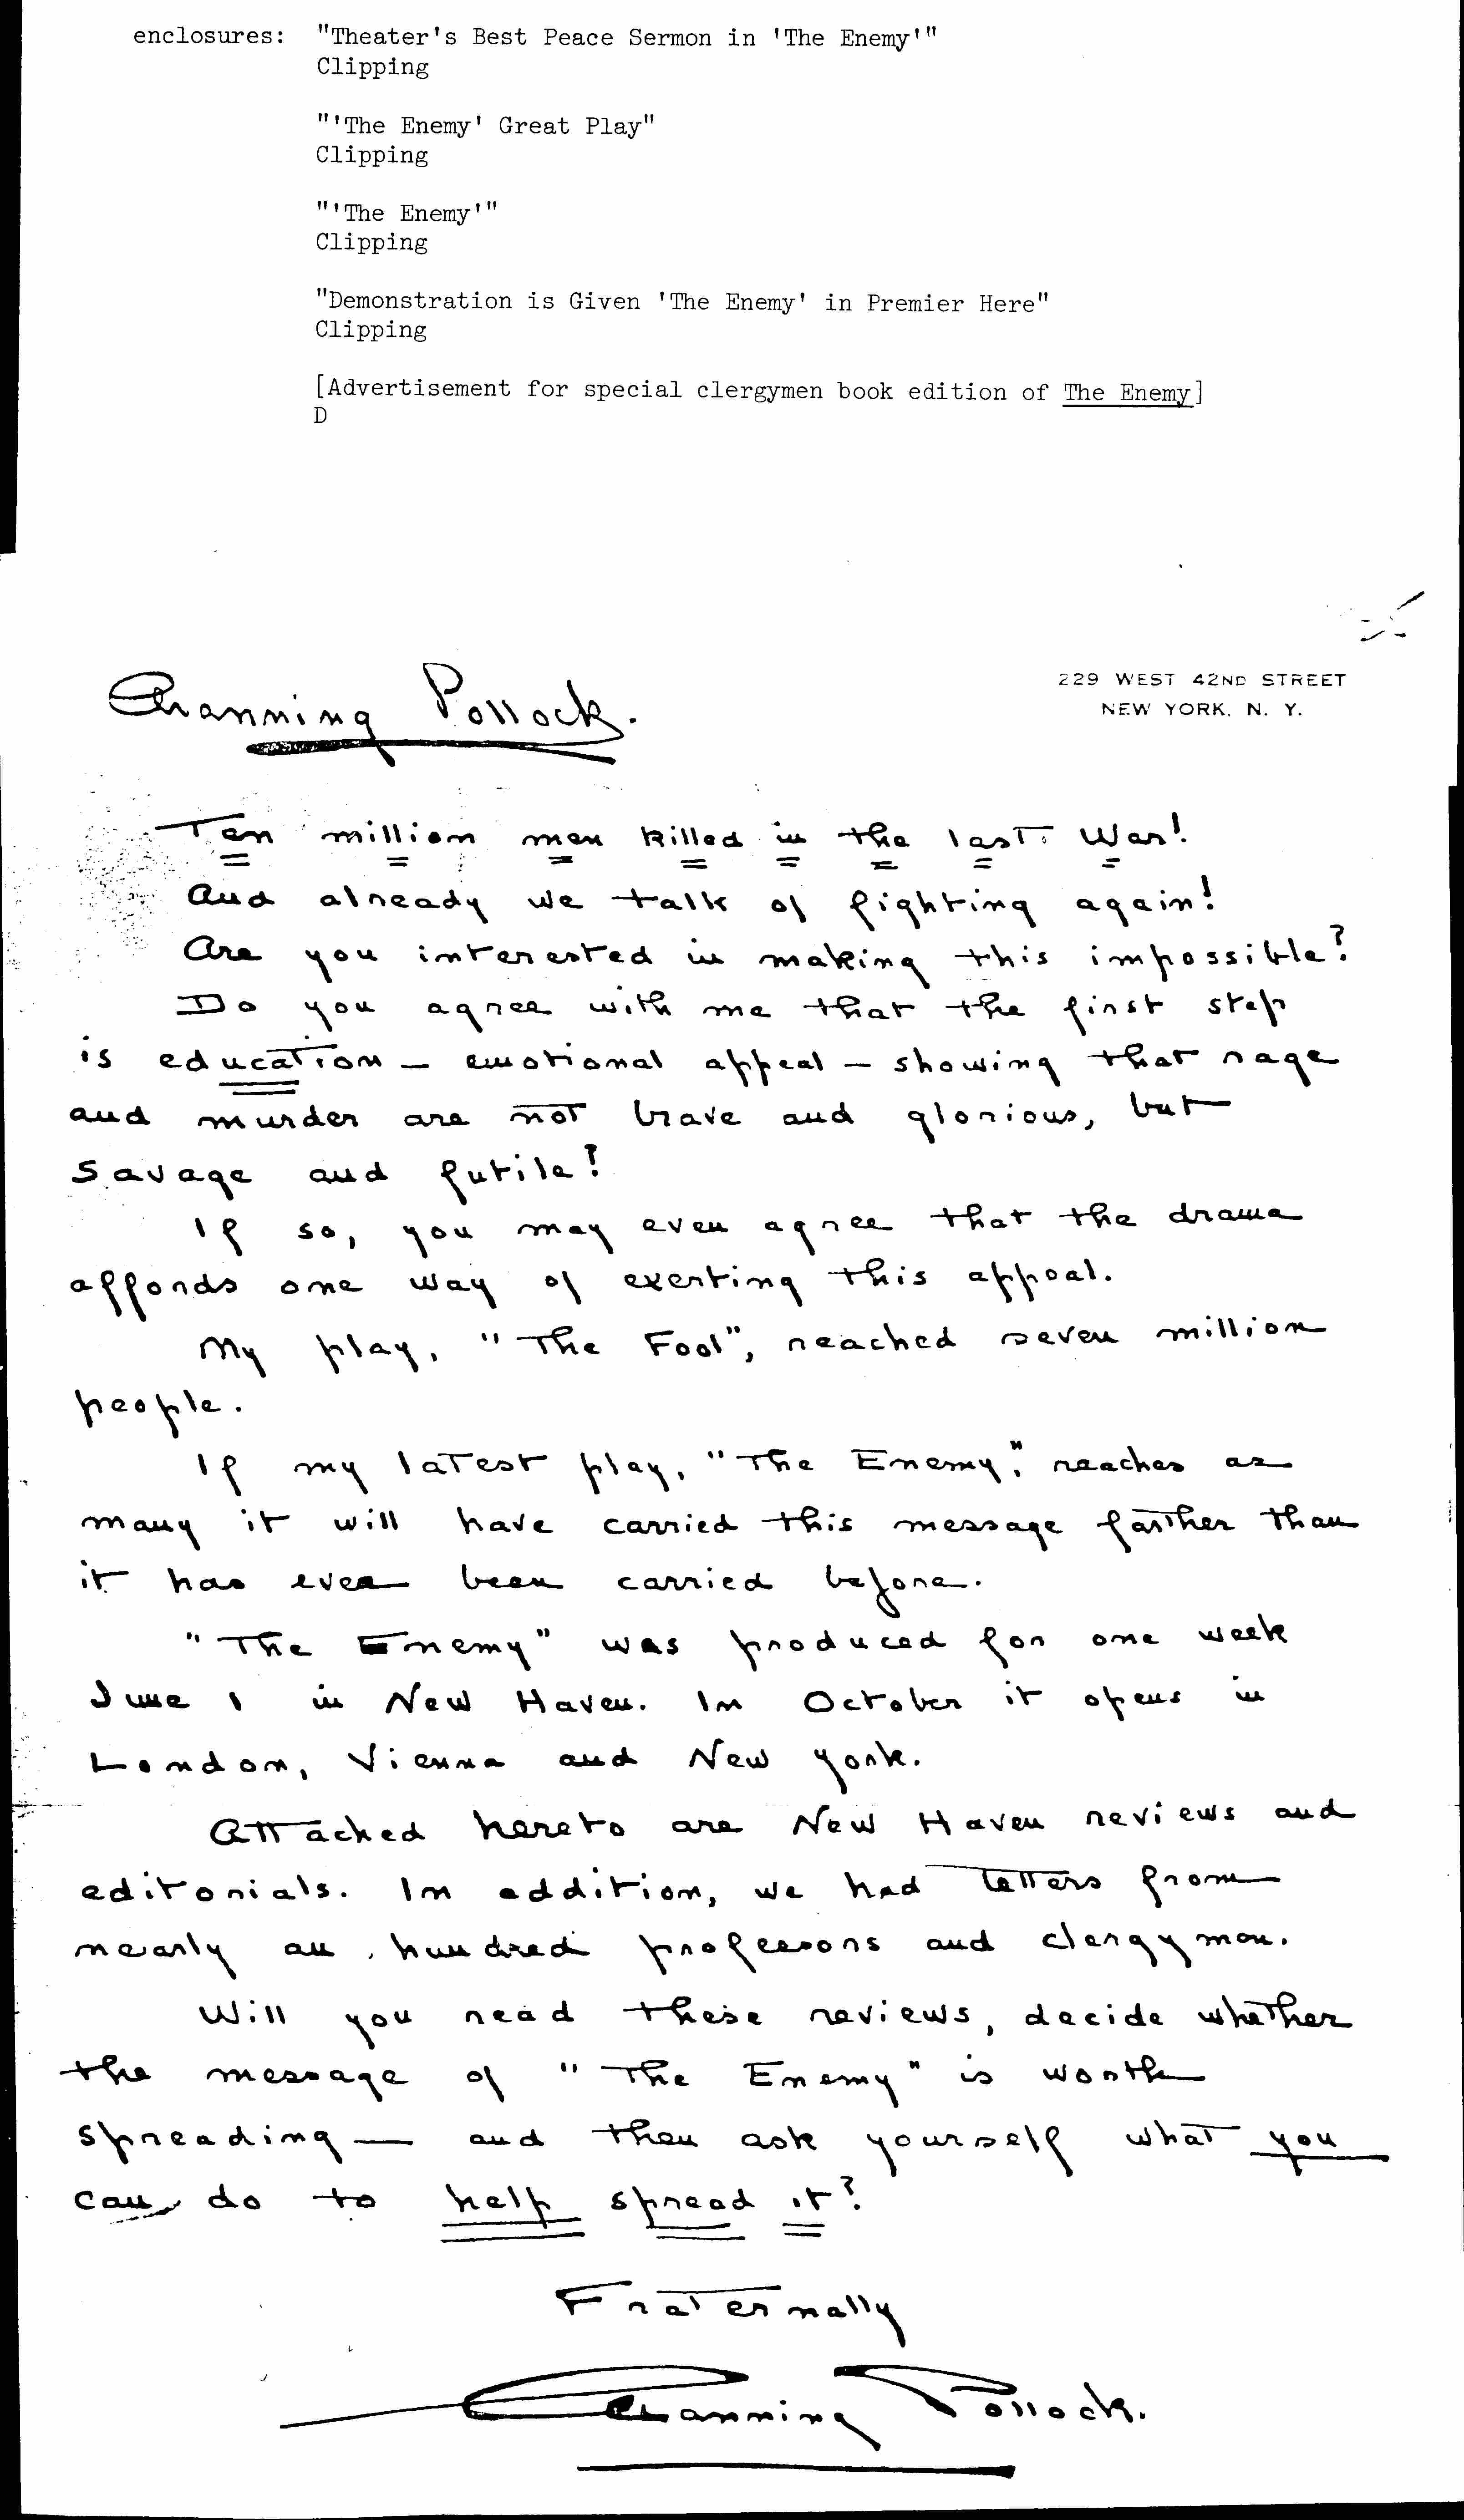 enclosures: "Theater's Best Peace Sermon in 'The Enemy'"
Clipping
"'The Enemy' Great Play"
Clipping
"'The Enemy'"
Clipping
"Demonstration is Given 'The Enemy' in Premier Here"
Clipping
[Advertisement for special clergymen book edition of The Enemy]
D
Channing Pollock.
229 WEST 42ND STREET
NEW YORK, N. Y.
Ten million men killed in the last War!
And already we talk of fighting again!
Are you interested in making this impossible?
Do you agree with me that the first step
is education — emotional appeal — showing that rage
and murder are not brave and glorious, but
savage and futile?
If so, you may even agree that the drama
affords one way of exerting this appeal.
My play, "The Fool", reached seven million
people.
If my latest play, "The Enemy", reaches as
many it will have carried this message farther than
it has ever been carried before.
"The Enemy" was produced for one week
June 1 in New Haven. In October it opens in
London, Vienna and New York.
Attached hereto are New Haven reviews and
editorials. In addition, we had letters from
nearly an hundred professors and clergymen.
Will you read these reviews, decide whether
the message of "The Enemy" is worth
spreading — and then ask yourself what you
can do to help spread it?
Fraternally
Channing Pollock.